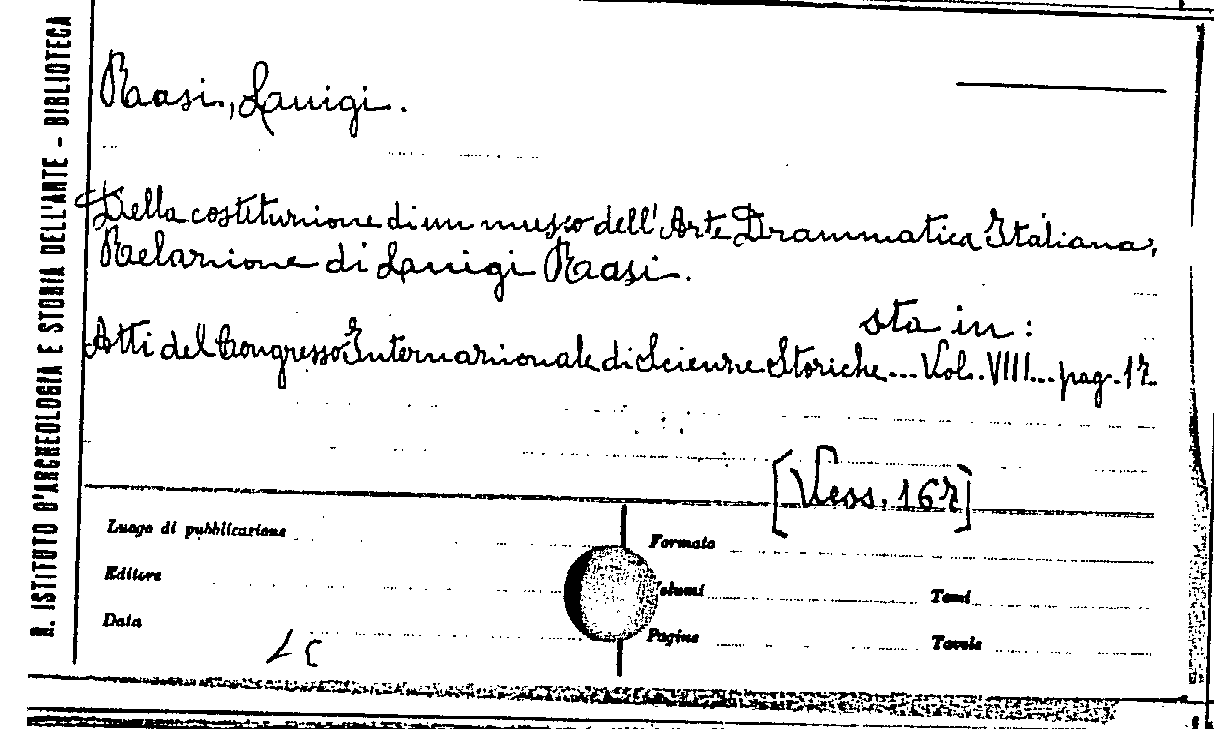 R. ISTITUTO D'ARCHEOLOGIA E STORIA DELL'ARTE - BIBLIOTECA
Rasi, Luigi.
Della costituzione di un museo dell'Arte Drammatica Italiana,
Relazione di Luigi Rasi.
sta in:
Atti del Congresso Internazionale di Scienze Storiche... Vol. VIII... pag. 17.
[Vess. 167]
Luogo di pubblicazione
Formato
Editore
Volumi
Tomi
Data
Pagine
Tavole